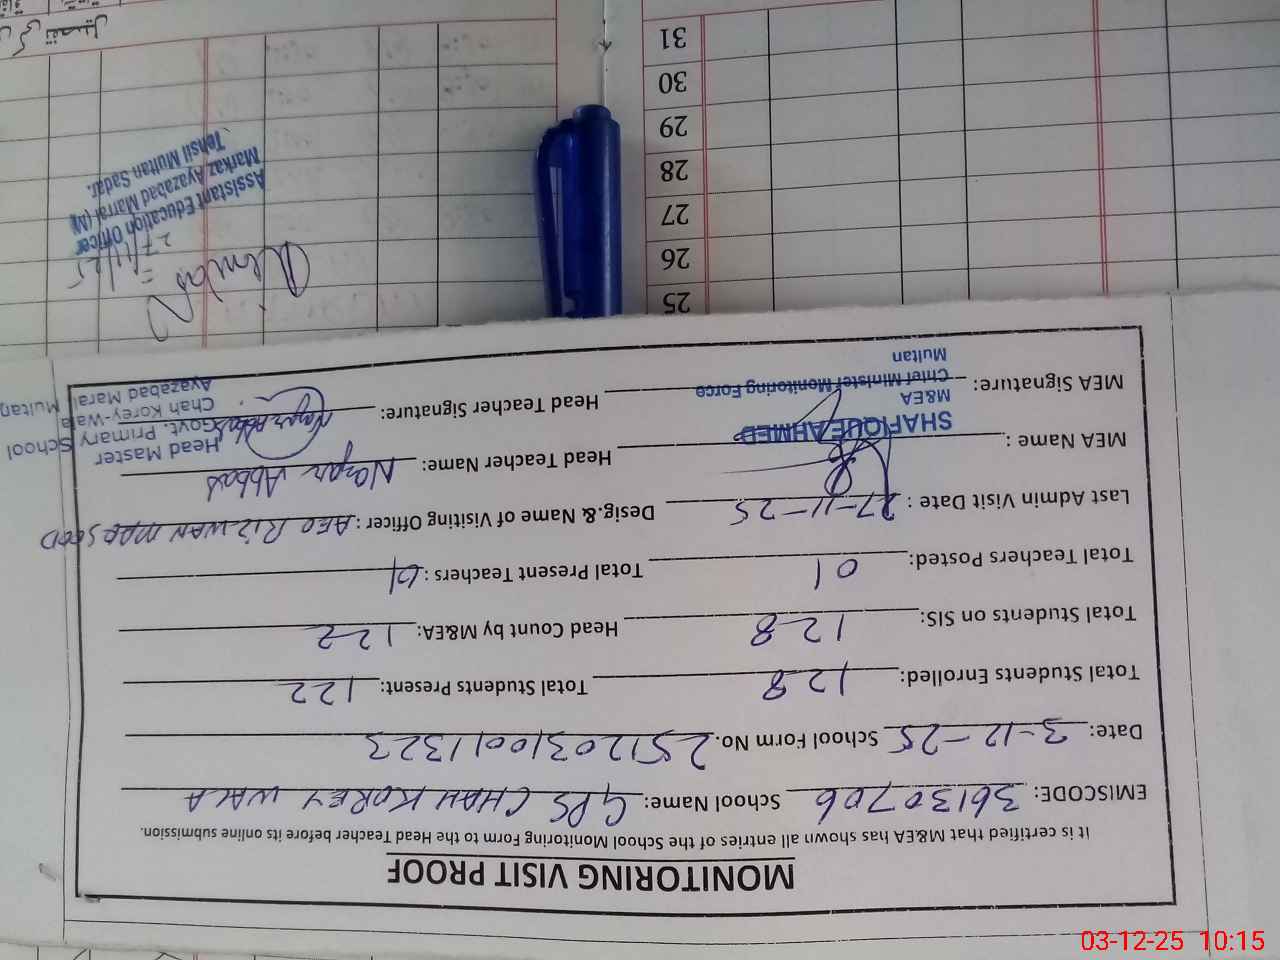 MONITORING VISIT PROOF
It is certified that M&EA has shown all entries of the School Monitoring Form to the Head Teacher before its online submission.
EMISCODE: 36130706 School Name: GPS CHAH KOREY WALA
Date: 3-12-25 School Form No. 2512031001323
Total Students Enrolled: 128 Total Students Present: 122
Total Students on SIS: 128 Head Count by M&EA: 122
Total Teachers Posted: 01 Total Present Teachers: 01
Last Admin Visit Date: 27-11-25 Desig.& Name of Visiting Officer: AEO RIZWAN MAQSOOD
MEA Name: Head Teacher Name: Nazar Abbas
SHAFIQUE AHMED
M&EA
Chief Minister Monitoring Force
Multan
MEA Signature: Head Teacher Signature: Nazar Abbas
Head Master
Govt. Primary School
Chah Korey-Wala
Ayazabad Maral Multan
25
26
27
28
29
30
31
27/11/25
Assistant Education Officer
Markaz Ayazabad Marral (M)
Tehsil Multan Sadar.
03-12-25 10:15